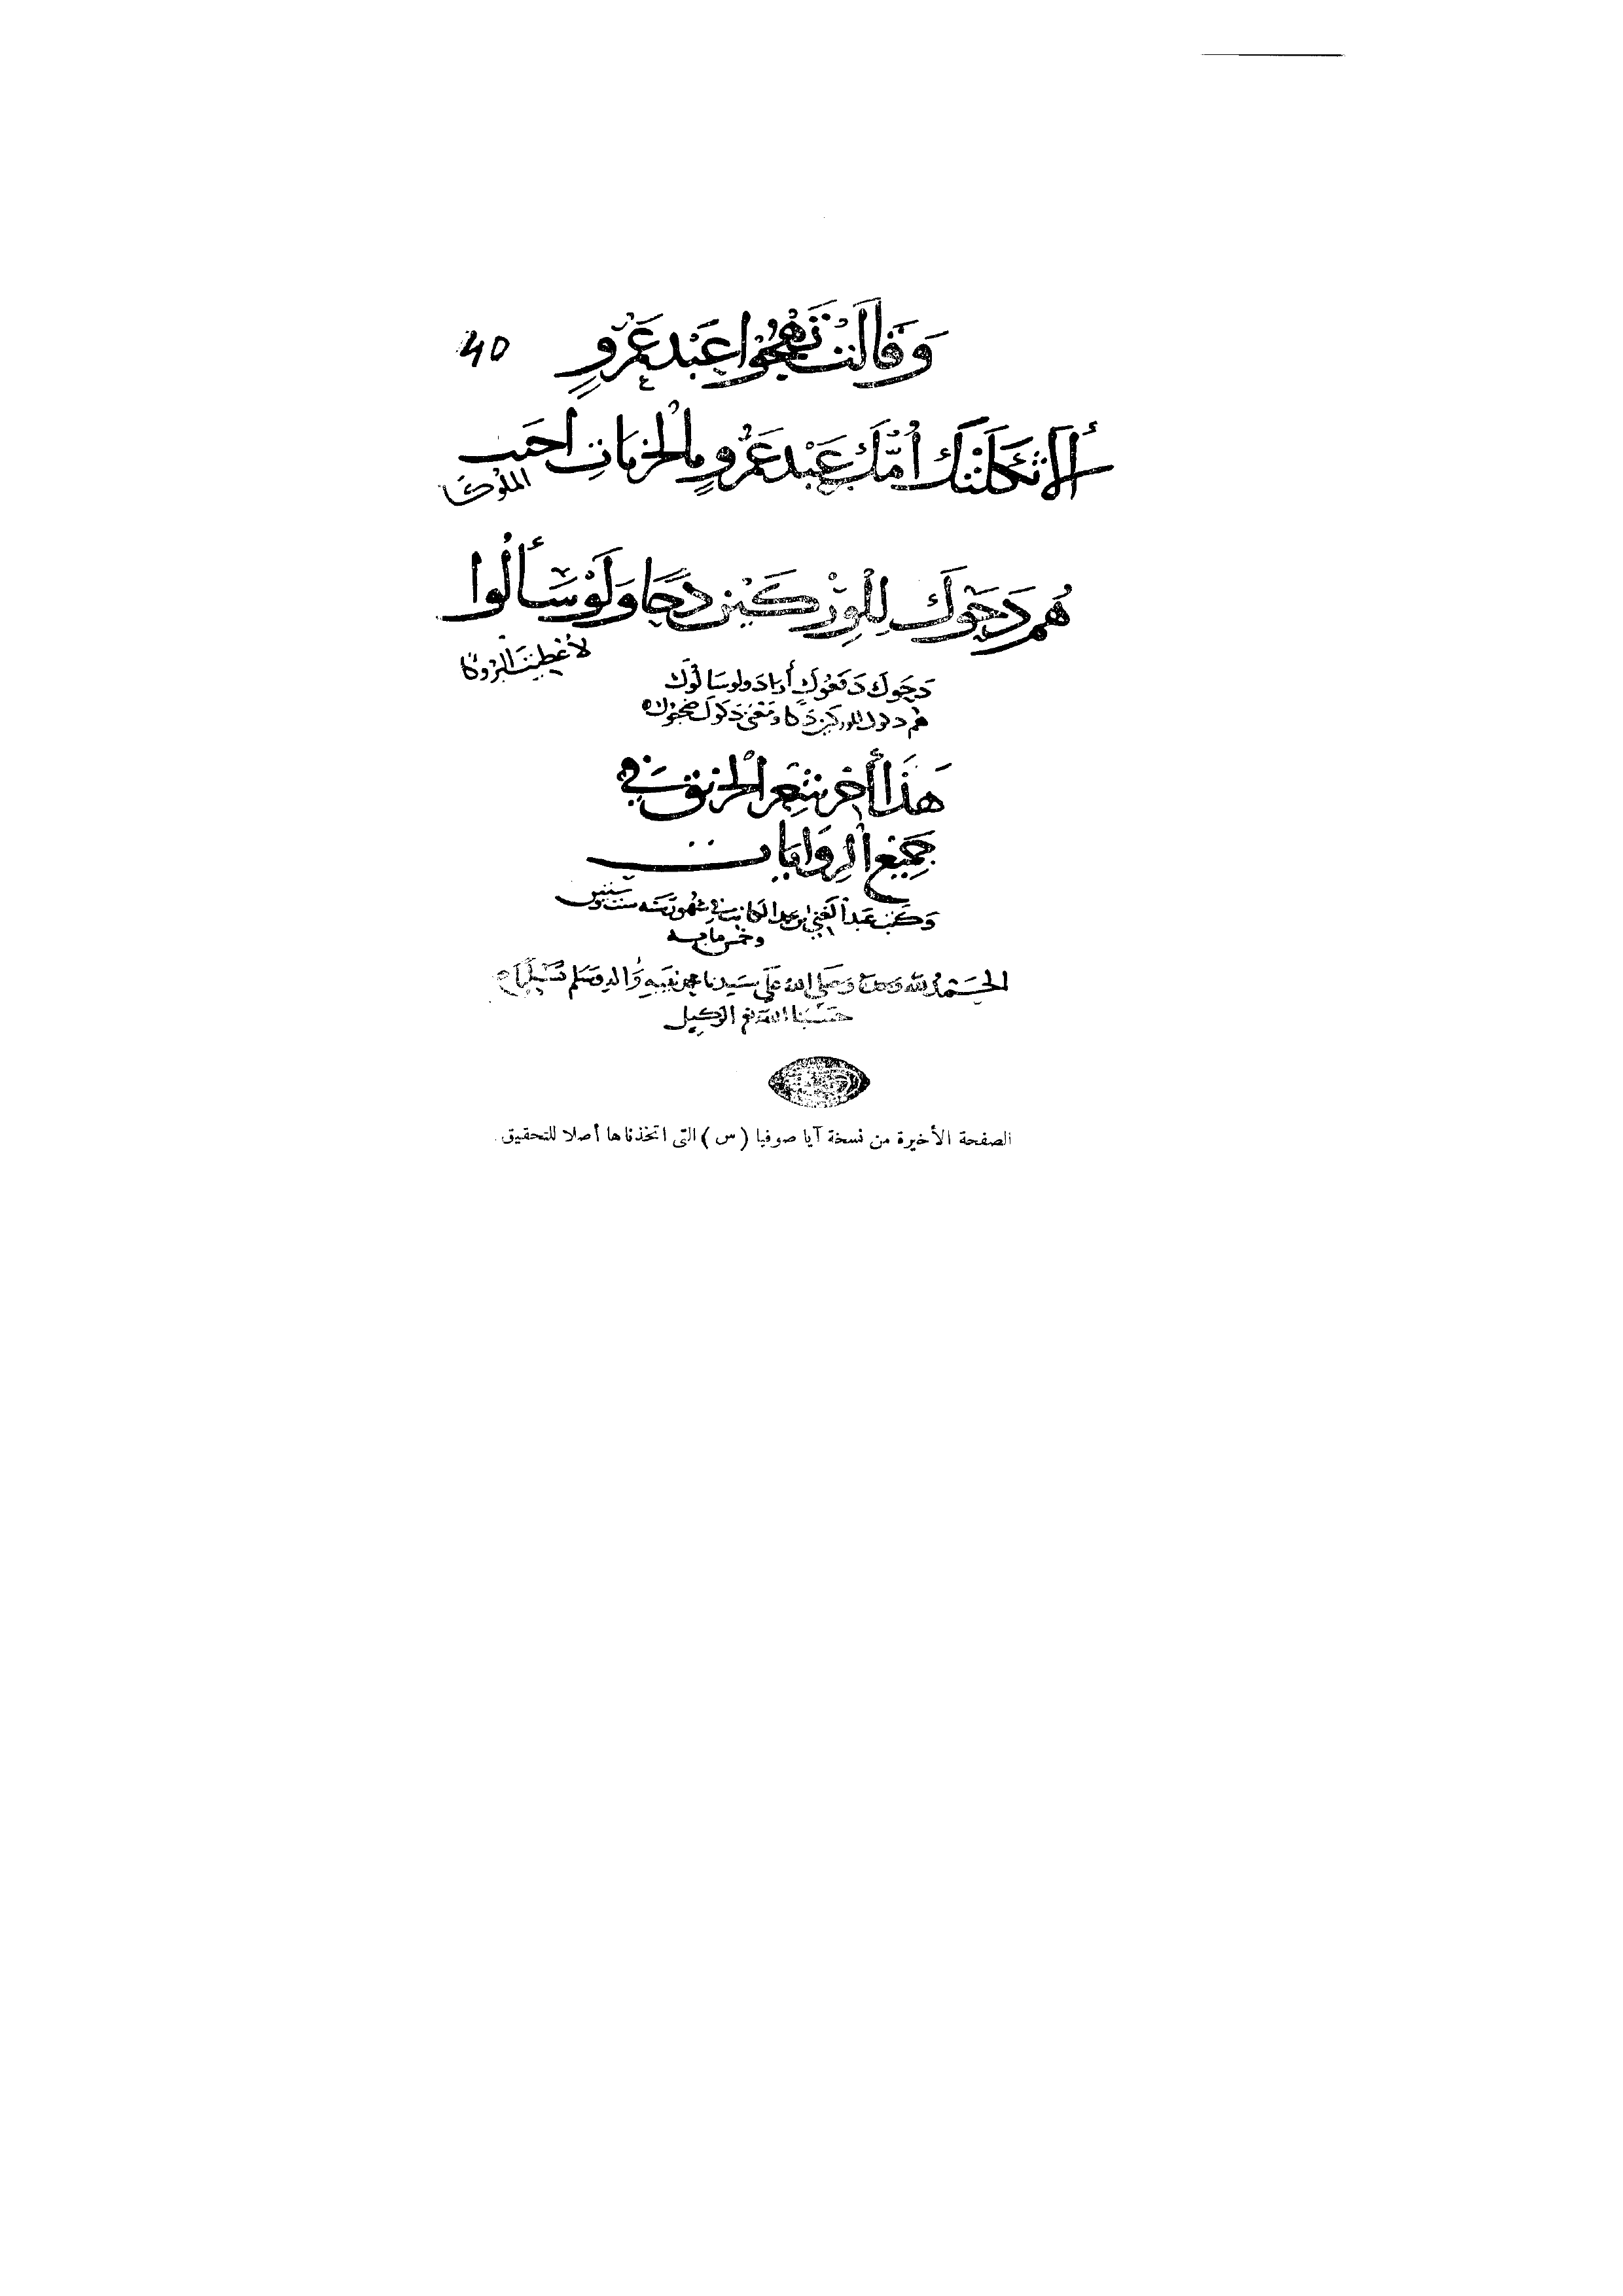 وَقَالَتْ تَهْجُوا عَبْدَ عَمْرٍو
40
أَلَا ثَكِلَتْكَ أُمُّكَ عَبْدَ عَمْرٍو مالخزَبَاتِ احَيت
الملُوكَا
هُم دَحَوْكَ لِلْوِرْكَيْنِ دَحًّا وَلَوْ سَأَلُوا
لأعْطَيْتَ البُرُوكَا
دَحَوكَ دَفَعُوكَ أرَادَ ولو سَالُوكَ
هُم دكوك للوركين دَكًّا ومَعْنَى دَكوكَ
هَذَا أخر شِعِر الْخرنق فِي
جَمِيْع الرِوَايَات
وَكتبَ عَبد الغَنِي بن عبد الكاتب في شهور سَنه ست
وخمس مايه
الحَمْدُ لله وحده وَصَلى الله عَلَى سَيدنا محمد نَبيه وَاله وَسَلم تَسْلِيما
حَسْبُنا الله نعم الوكيل
الصفحة الأخيرة من نسخة آيا صوفيا ( س ) التى اتخذناها أصلا للتحقيق .